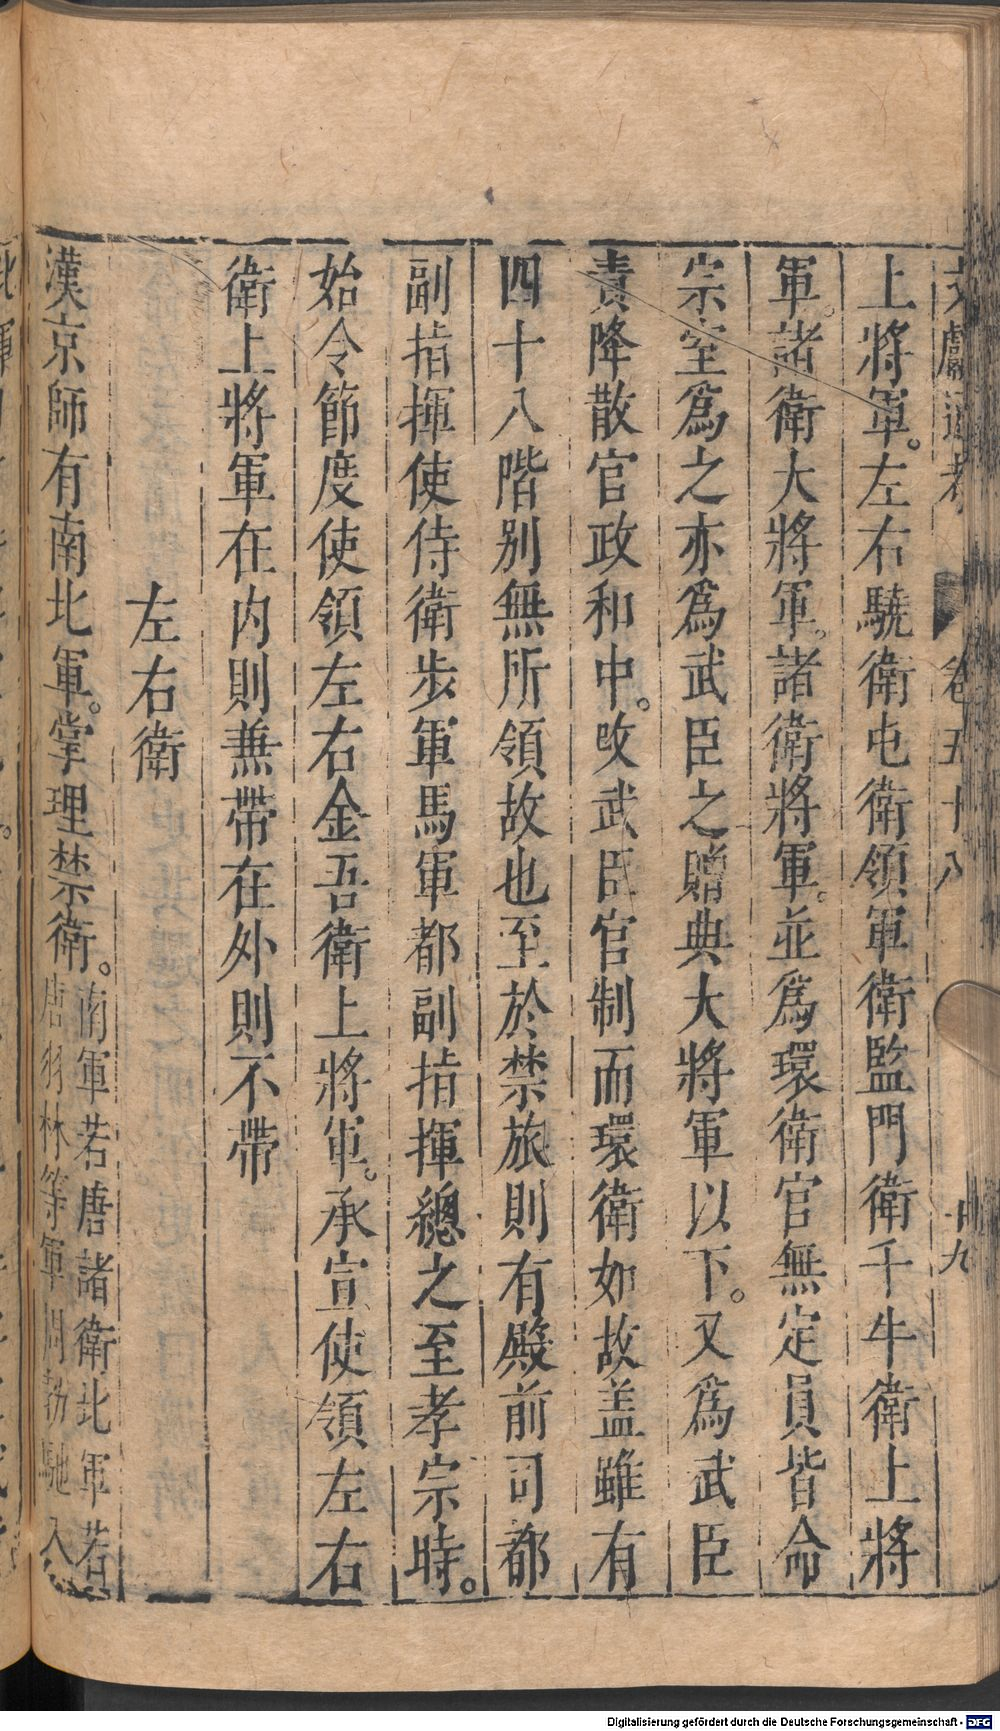 文獻通考 卷五十八 十九
上將軍。左右驍衛屯衛領軍衛監門衛千牛衛上將
軍。諸衛大將軍。諸衛將軍。並爲環衛官無定員皆命
宗室爲之亦爲武臣之贈典大將軍以下。又爲武臣
責降散官政和中。攺武臣官制而環衛如故盖雖有
四十八階别無所領故也至於禁旅則有殿前司都
副指揮使侍衛步軍馬軍都副指揮總之至孝宗時。
始令節度使領左右金吾衛上將軍。承宣使領左右
衛上將軍在内則兼帶在外則不帶
左右衛
漢京師有南北軍。掌理禁衛。南軍若唐諸衛北軍若
唐羽林等軍周勃馳入
Digitalisierung gefördert durch die Deutsche Forschungsgemeinschaft - DFG